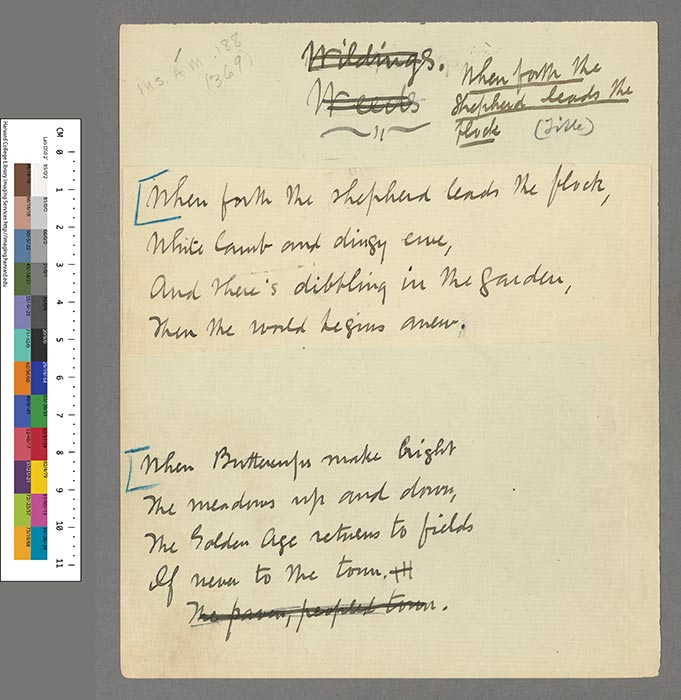 ms. Am. 188
(369)
Wildings.
Weeds
When forth the
Shepherd leads the
flock (Title)
When forth the shepherd leads the flock,
White lamb and dingy ewe,
And there's dibbling in the garden,
Then the world begins anew.
When Buttercups make bright
The meadows up and down,
The Golden Age returns to fields
If never to the town.
The paven, peopled town.
CM 0 1 2 3 4 5 6 7 8 9 10 11
Harvard College Library Imaging Services http://imaging.harvard.edu